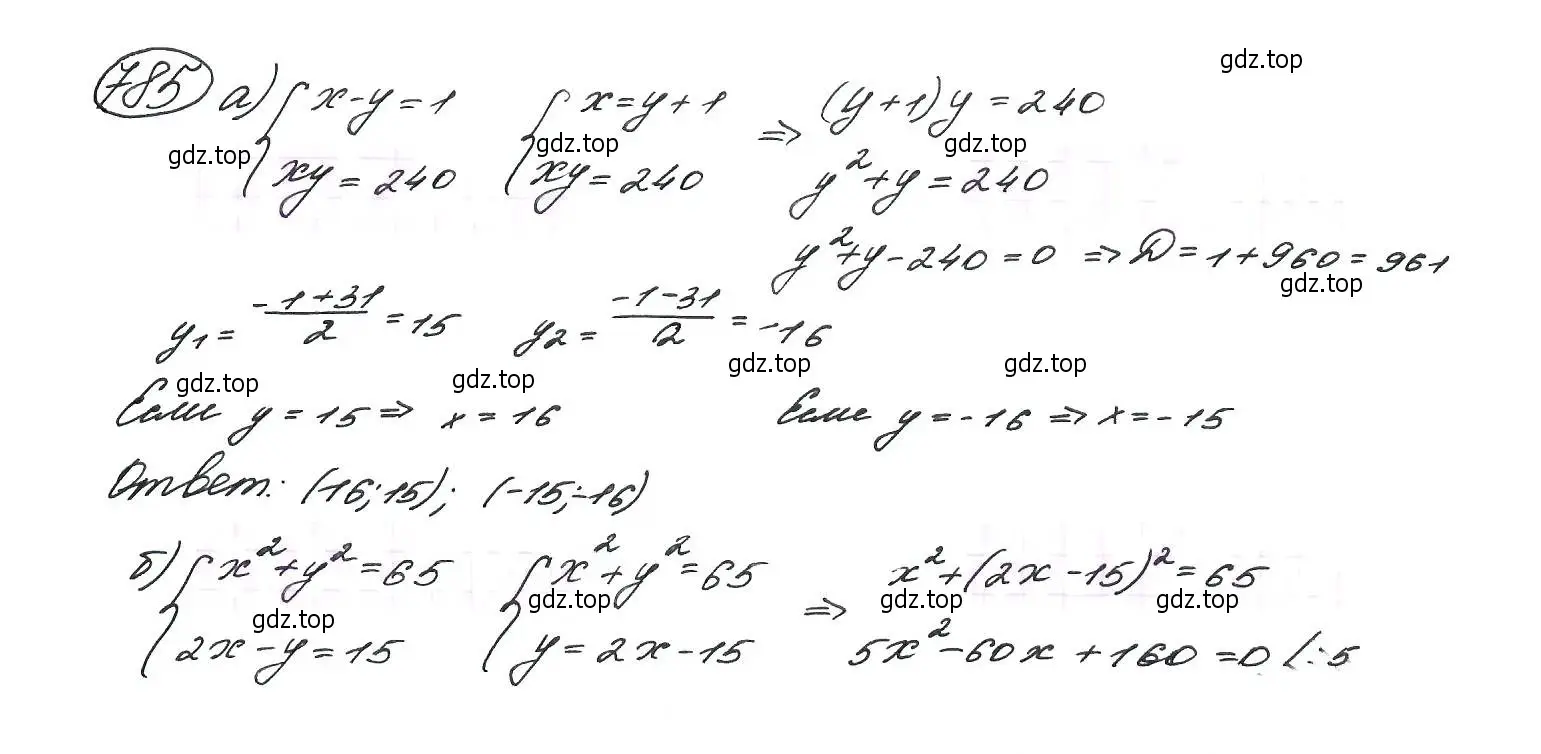 gdz.top
785 а) { x - y = 1   { x = y + 1   ⇒ (y + 1)y = 240
gdz.top gdz.top gdz.top
xy = 240   xy = 240   y² + y = 240
y² + y - 240 = 0 ⇒ D = 1 + 960 = 961
gdz.top
y₁ = (-1+31)/2 = 15   y₂ = (-1-31)/2 = -16
gdz.top gdz.top gdz.top gdz.top
Если y = 15 ⇒ x = 16   Если y = -16 ⇒ x = -15
Ответ: (16; 15); (-15; -16)
б) { x² + y² = 65   { x² + y² = 65   ⇒ x² + (2x - 15)² = 65
gdz.top gdz.top gdz.top gdz.top
2x - y = 15   y = 2x - 15   5x² - 60x + 160 = 0 /:5